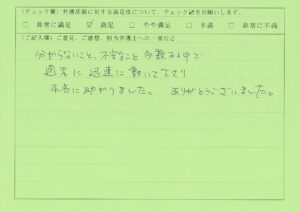 (チェック欄) 弁護活動に対する満足度について、チェックをお願いします。
□ 非常に満足 ☑ 満足 □ やや満足 □ 不満 □ 非常に不満
(ご記入欄) ご意見、ご感想、担当弁護士への一言など
分からないこと、不安なこと多数ある中で
適承に 迅速に 動いて下さり
本当に助かりました。 ありがとうございました。